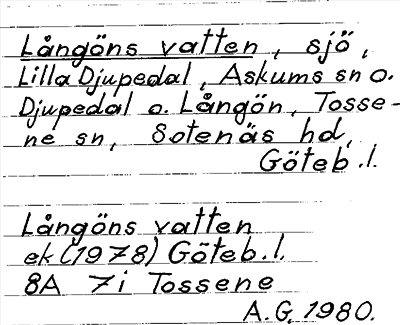 Långöns vatten, sjö,
Lilla Djupedal, Askums sn o.
Djupedal o. Långön, Tosse-
ne sn, Sotenäs hd,
Göteb.l.
Långöns vatten
ek (1978) Göteb.l.
8A 7i Tossene
A.G. 1980.